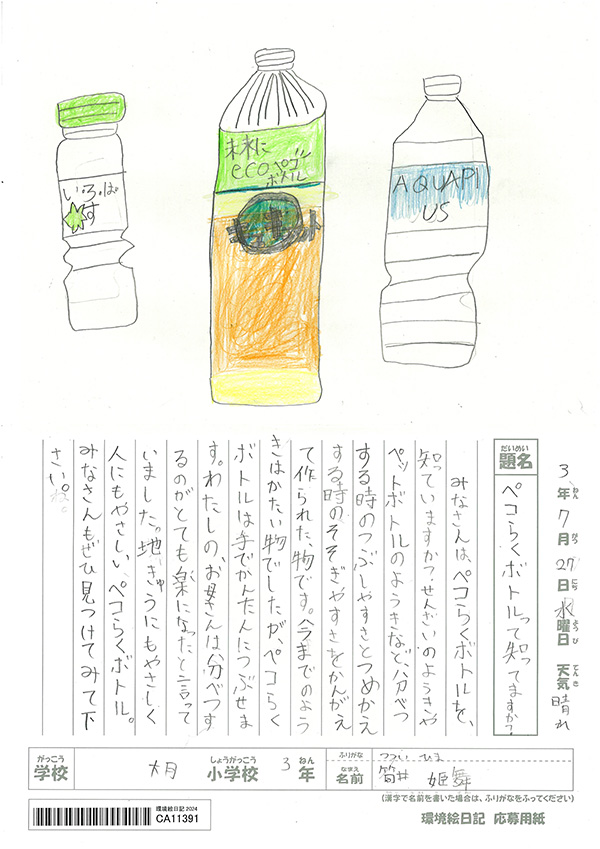 いろ・は
す
未来に
ecoペコッ
ボトル
AQUAPI
US
3年 7月 27日 水曜日 天気 晴れ
ねん がつ にち ようび てんき
だいめい
題名
ペコらくボトルって知ってますか?
みなさんは、ペコらくボトルを、
知っていますか?せんざいのようきや
ペットボトルのようきなど、分べつ
する時のつぶしやすさとつめかえ
する時のそそぎやすさをかんがえ
て作られた、物です。今までのよう
きはかたい物でしたが、ペコらく
ボトルは手でかんたんにつぶせま
す。わたしの、お母さんは分べつす
るのがとても楽になったと言って
いました。地きゅうにもやさしく
人にもやさしい、ペコらくボトル。
みなさんもぜひ見つけてみて下
さい。
がっこう
学校
大月
しょうがっこう
小学校
3
ねん
年
ふりがな
つつい ひま
なまえ
名前
筒井 姫舞
(漢字で名前を書いた場合は、ふりがなをふってください)
環境絵日記 2024
CA11391
環境絵日記 応募用紙